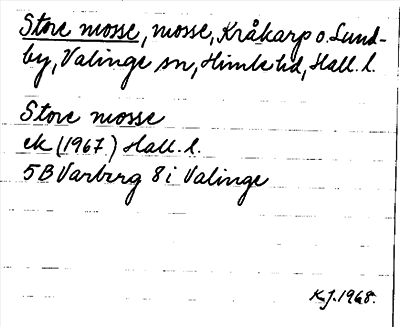 Store mosse, mosse, Kråkarp o. Lund-
by, Valinge sn, Himle hd, Hall. l.
Store mosse
ek (1967) Hall. l.
5B Varberg 8 i Valinge
K.J. 1968.